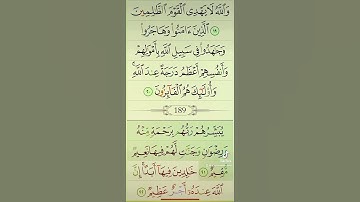 وَٱللَّهُ لَا يَهْدِى ٱلْقَوْمَ ٱلظَّـٰلِمِينَ
١٩ ٱلَّذِينَ ءَامَنُوا۟ وَهَاجَرُوا۟
وَجَـٰهَدُوا۟ فِى سَبِيلِ ٱللَّهِ بِأَمْوَٰلِهِمْ
وَأَنفُسِهِمْ أَعْظَمُ دَرَجَةً عِندَ ٱللَّهِ ۚ
وَأُو۟لَـٰٓئِكَ هُمُ ٱلْفَآئِزُونَ ٢٠
189
يُبَشِّرُهُمْ رَبُّهُم بِرَحْمَةٍ مِّنْهُ
وَرِضْوَٰنٍ وَجَنَّـٰتٍ لَّهُمْ فِيهَا نَعِيمٌ
مُّقِيمٌ ٢١ خَـٰلِدِينَ فِيهَآ أَبَدًا ۚ إِنَّ
ٱللَّهَ عِندَهُۥٓ أَجْرٌ عَظِيمٌ ٢٢